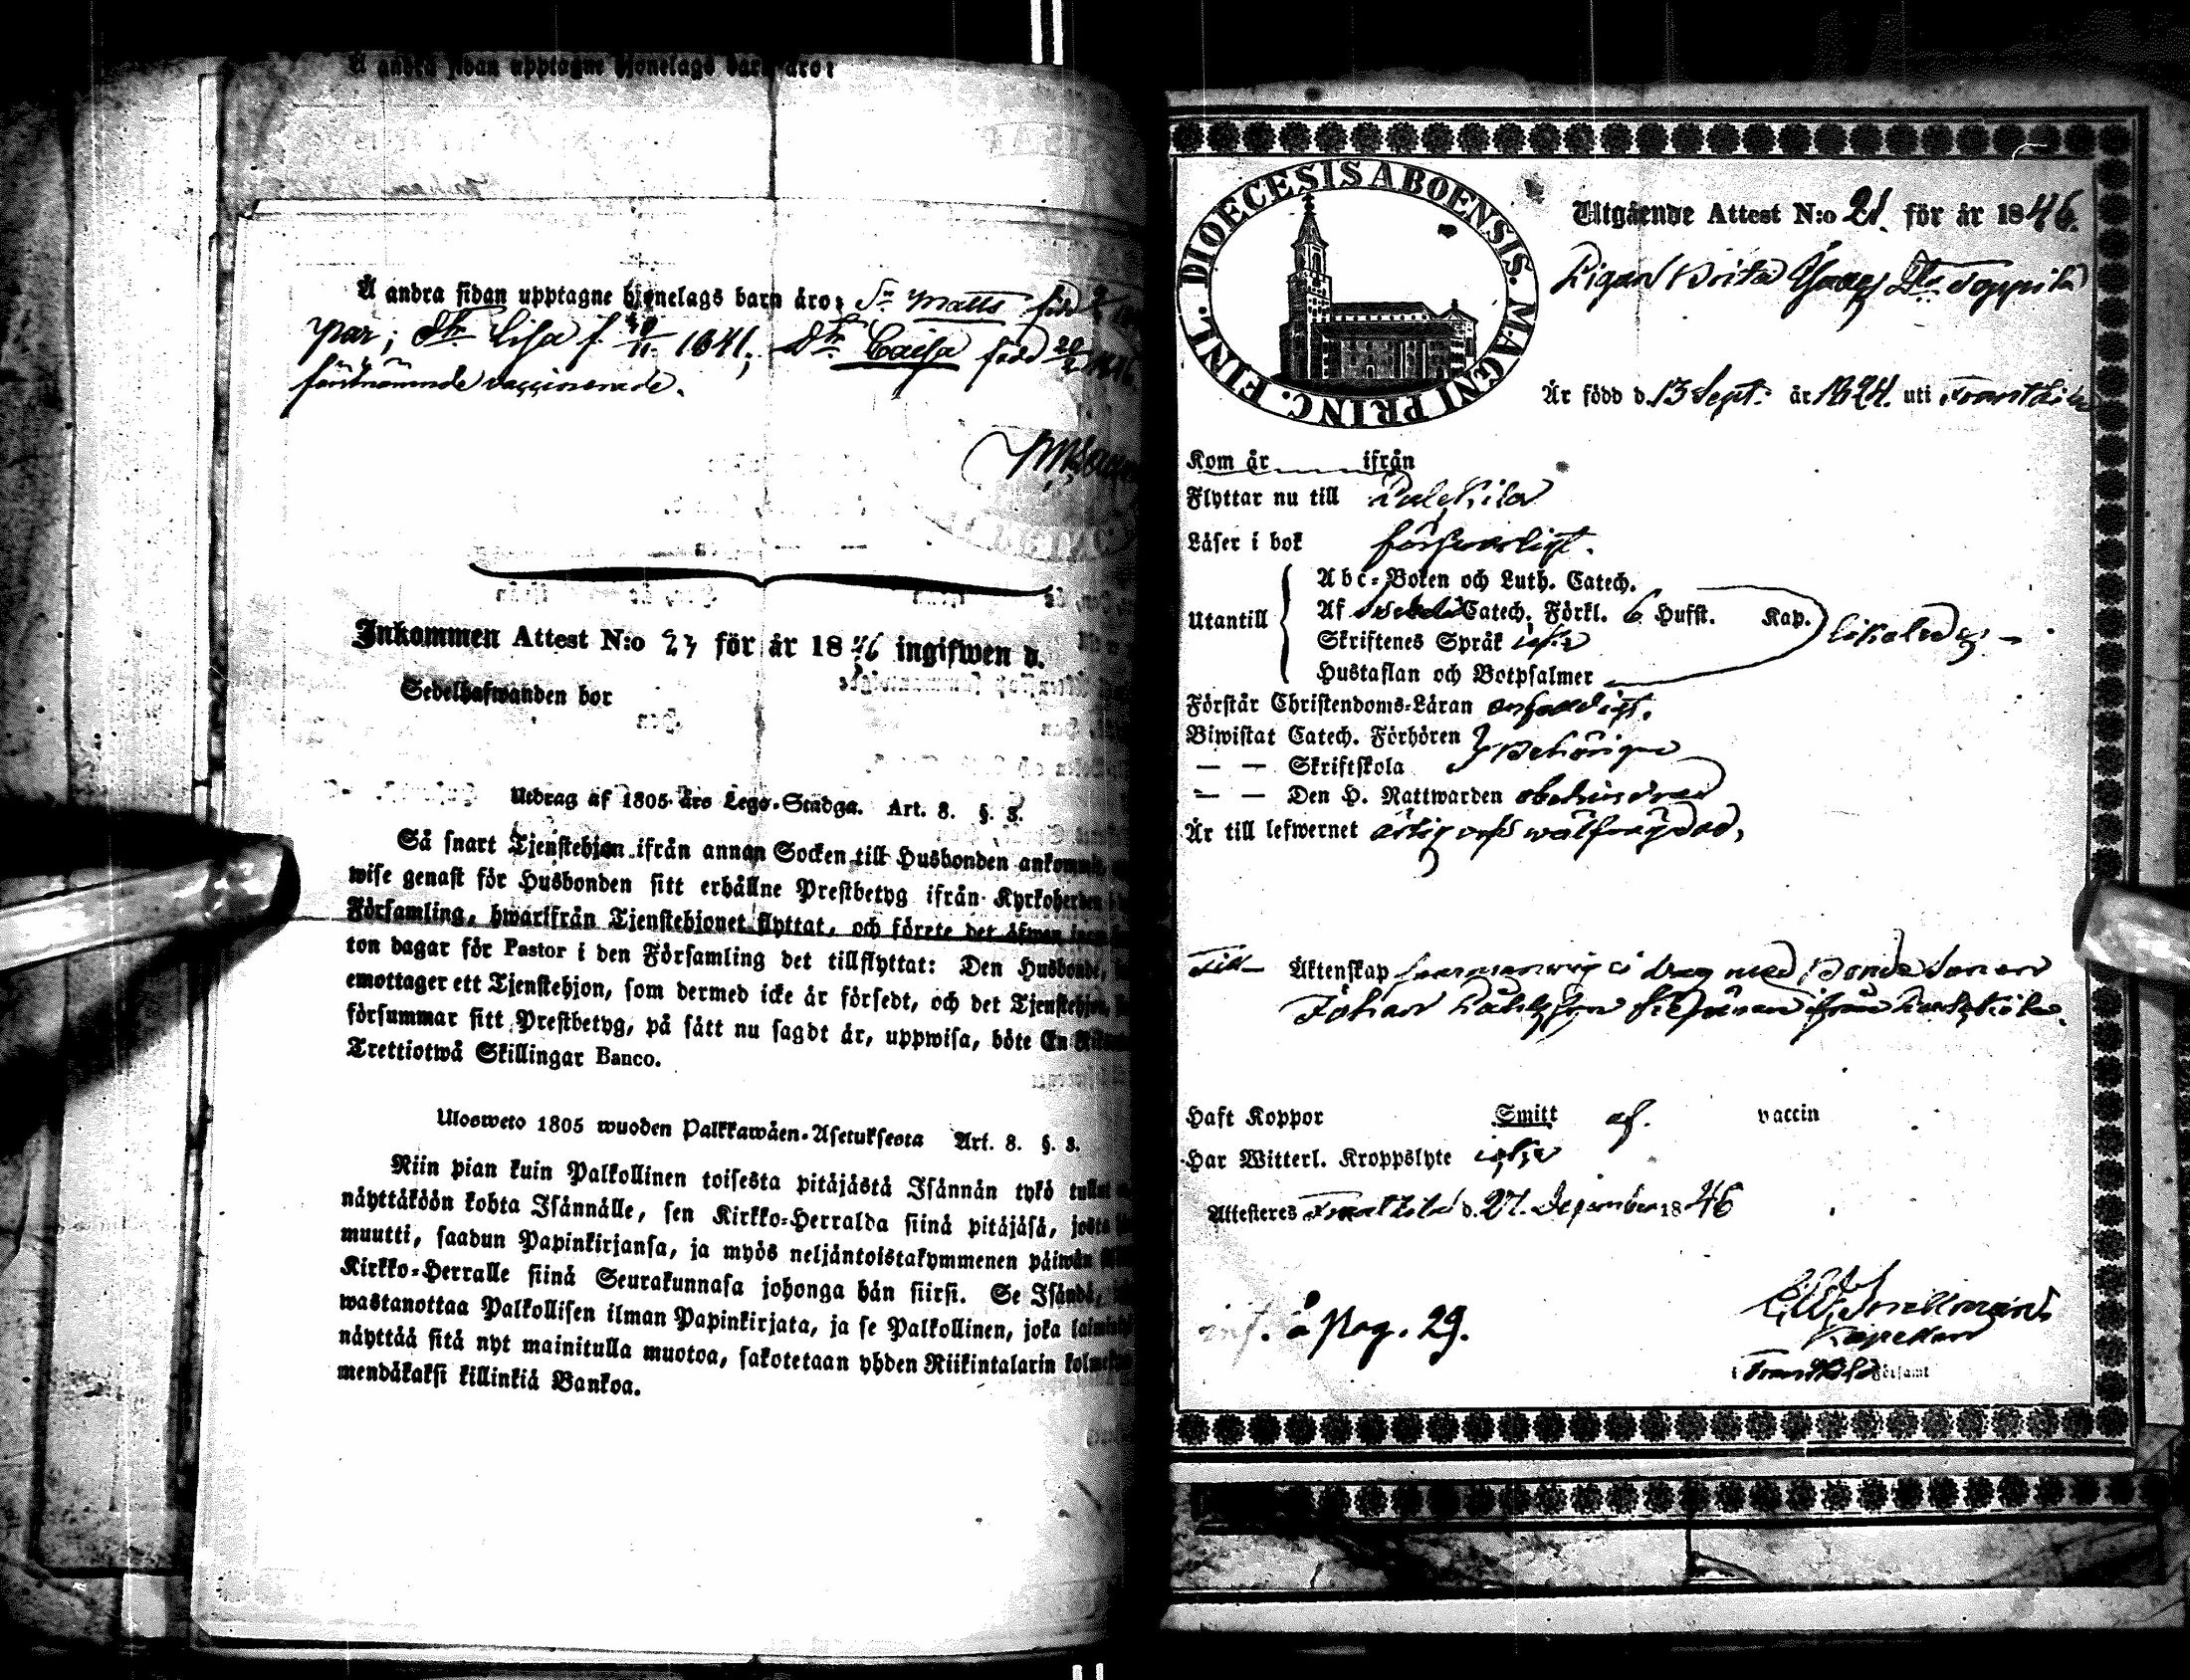 Å andra sidan upptagne hjonelags barn äro:
Å andra sidan upptagne hjonelags barn äro: Sn Matts född
par; Dtr Lisa f. 1841; Dtr Caisa född
förstnämnde vaccinerade.
Inkommen Attest N:o 23 för år 1846 ingifwen d.
Sedelhafwanden bor
Utdrag af 1805 års Lego-Stadga. Art. 8. §. 3.
Så snart Tjenstehjon ifrån annan Socken till Husbonden ankommit,
wise genast för Husbonden sitt erhållne Prestbetyg ifrån Kyrkoherden
Församling, hwarifrån Tjenstehjonet flyttat, och förete det äfwen
ton dagar för Pastor i den Församling det tillflyttat: Den Husbonde,
emottager ett Tjenstehjon, som dermed icke är försedt, och det Tjenstehjon,
försummar sitt Prestbetyg, på sätt nu sagdt är, uppwisa, böte En
Trettiotwå Skillingar Banco.
Ulosweto 1805 wuoden Palkkawäen-Asetuksesta Art. 8. §. 3.
Niin pian kuin Palkollinen toisesta pitäjästä Isännän tykö tullut
näyttäköön kohta Isännälle, sen Kirkko-Herralda siinä pitäjäsä, josta
muutti, saadun Papinkirjansa, ja myös neljäntoistakymmenen päiwän
Kirkko-Herralle siinä Seurakunnasa johonga hän siirsi. Se Isändä,
wastanottaa Palkollisen ilman Papinkirjata, ja se Palkollinen, joka
näyttää sitä nyt mainitulla muotoa, sakotetaan yhden Riikintalarin
mendäkaksi killinkiä Bankoa.
DIOECESIS ABOENSIS. MAGNI PRINC. FINL.
Utgående Attest N:o 21. för år 1846.
Pigan Brita Dtr Toppila
Är född d. 13 Sept: år 1824. uti Frantzila
Kom år ifrån
Flyttar nu till Pulckila
Läser i bok förswarligt.
Abc-Boken och Luth. Catech.
Utantill Af Catech. Förkl. 6 Hufst. Kap.
Skriftenes Språk icke
Hustaflan och Botpsalmer
Förstår Christendoms-Läran enfaldigt.
Biwistat Catech. Förhören
— — Skriftskola behörigen
— — Den H. Nattwarden obehindrad
Är till lefwernet ärlig och wälfrägdad,
Till Äktenskap med Bonde Sonen
Johan ifrån
Haft Koppor Smitt af. vaccin
Har Witterl. Kroppslyte icke
Attesteras Frantzila d. 27. December 1846
Kapellan
i Frantzila Församl
inf. å Pag. 29.